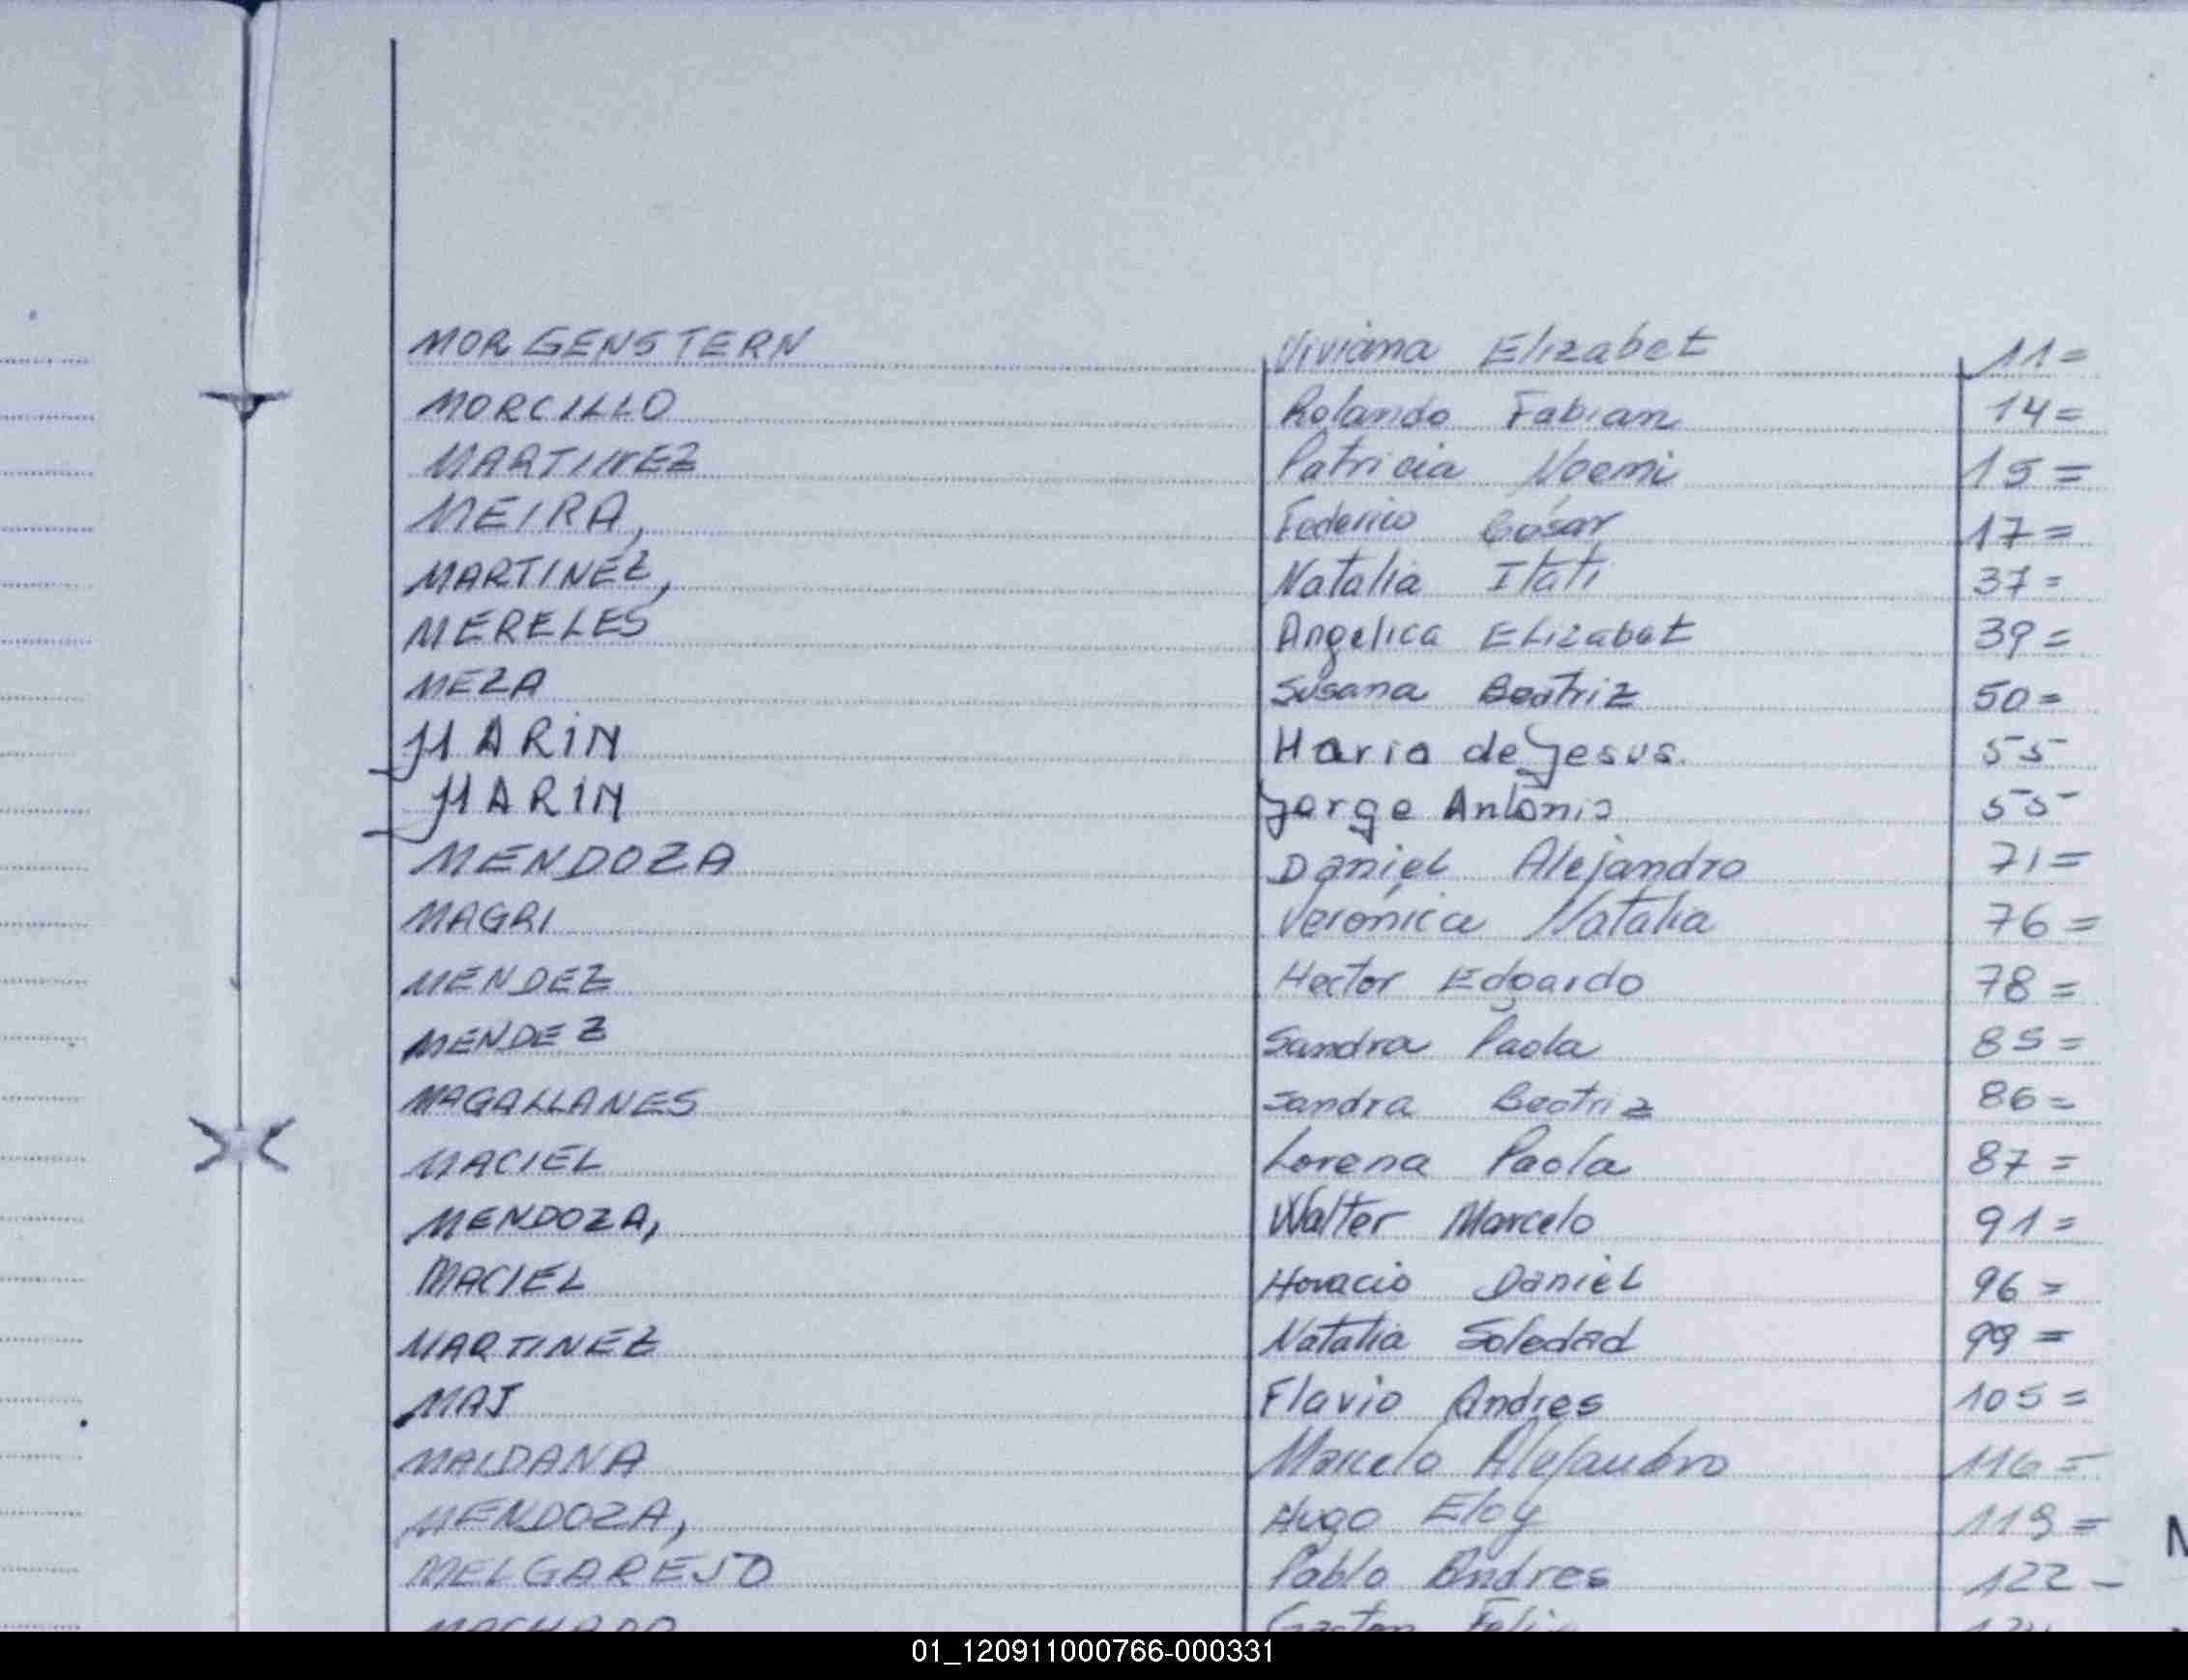 MORGENSTERN Viviana Elizabet 11=
MORCILLO Rolando Fabian 14=
MARTINEZ Patricia Noemi 15=
MEIRA, Federico César 17=
MARTINEZ, Natalia Itati 37=
MERELES Angelica Elizabet 39=
MEZA Susana Beatriz 50=
MARIN Maria de Jesus. 55
MARIN Jorge Antonio 55
MENDOZA Daniel Alejandro 71=
MAGRI Verónica Natalia 76=
MENDEZ Hector Edgardo 78=
MENDEZ Sandra Paola 85=
MAGALLANES Sandra Beatriz 86=
MACIEL Lorena Paola 87=
MENDOZA, Walter Marcelo 91=
MACIEL Horacio Daniel 96=
MARTINEZ Natalia Soledad 99=
MAJ Flavio Andres 105=
MALDANA Marcelo Alejandro 116=
MENDOZA, Hugo Eloy 119=
MELGAREJO Pablo Andres 122-
MACHADO Gaston
01_120911000766-000331